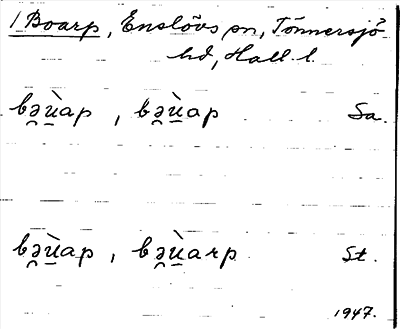 1 Boarp, Enslövs sn, Tönnersjö
hd, Hall. l.
bə̯ù̱ap, bə̯ù̱ap Sa.
bə̯ù̱ap, bə̯ù̱arp St.
1947.